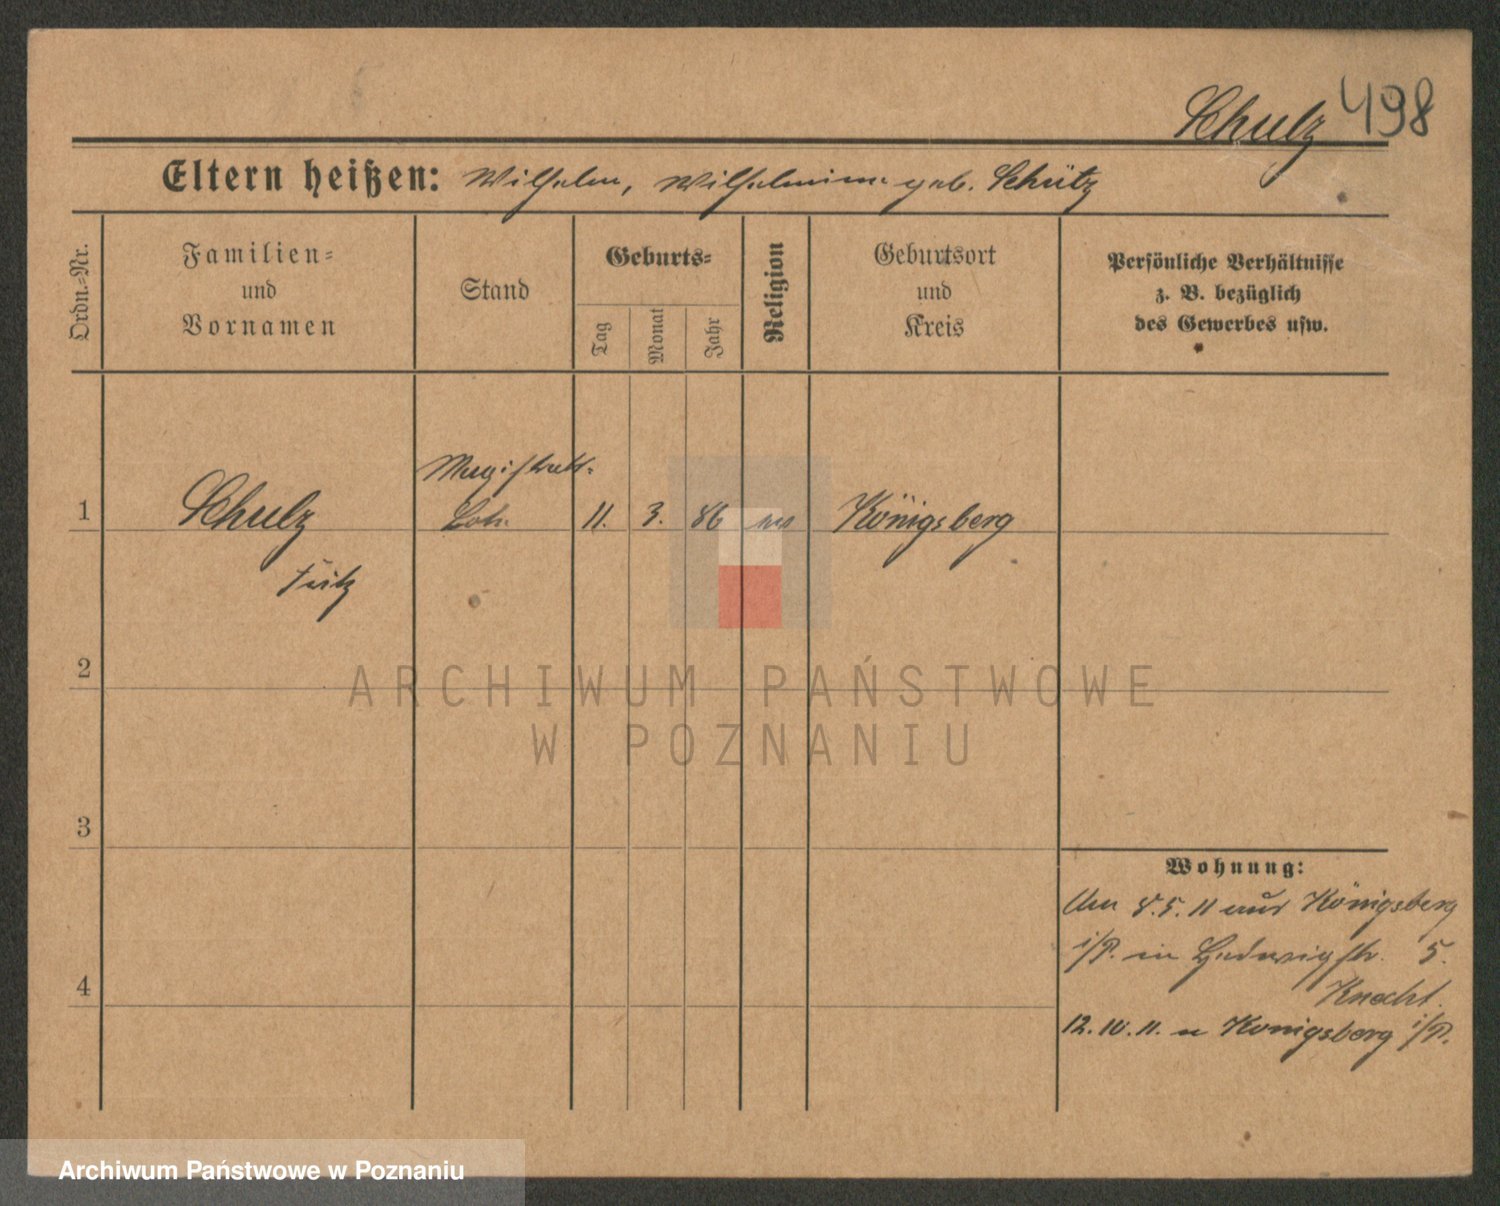 Schulz 498
Eltern heißen: Wilhelm, Wilhelmine geb. Schütz
Ordn.-Nr.
Familien=
und
Vornamen
Stand
Geburts=
Tag
Monat
Jahr
Religion
Geburtsort
und
Kreis
Persönliche Verhältnisse
z. B. bezüglich
des Gewerbes usw.
Magistrats-
1 Schulz 11. 3. 86 Königsberg
Fritz
2
3
4
Wohnung:
Am 8.5.11 aus Königsberg
i/P. in Hedwigstr. 5.
Knecht.
12.10.11. n Königsberg i/P.
ARCHIWUM PAŃSTWOWE
W POZNANIU
Archiwum Państwowe w Poznaniu